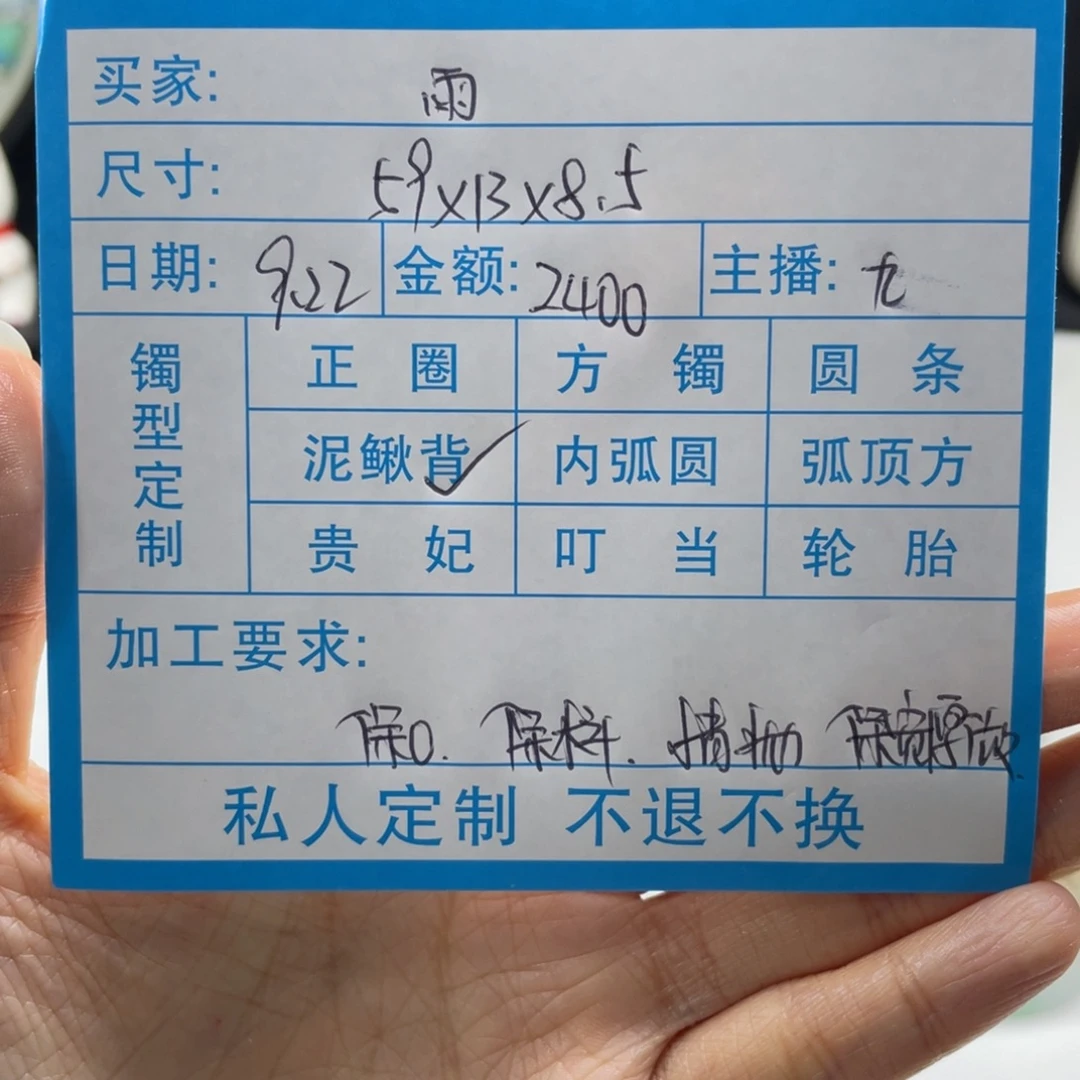 买家: 雨
尺寸: 59x13x8.5
日期: 9.22 金额: 2400 主播: 九
镯型定制
正圈 方镯 圆条
泥鳅背✓ 内弧圆 弧顶方
贵妃 叮当 轮胎
加工要求:
保口. 保料. 精抛 保宽厚
私人定制 不退不换